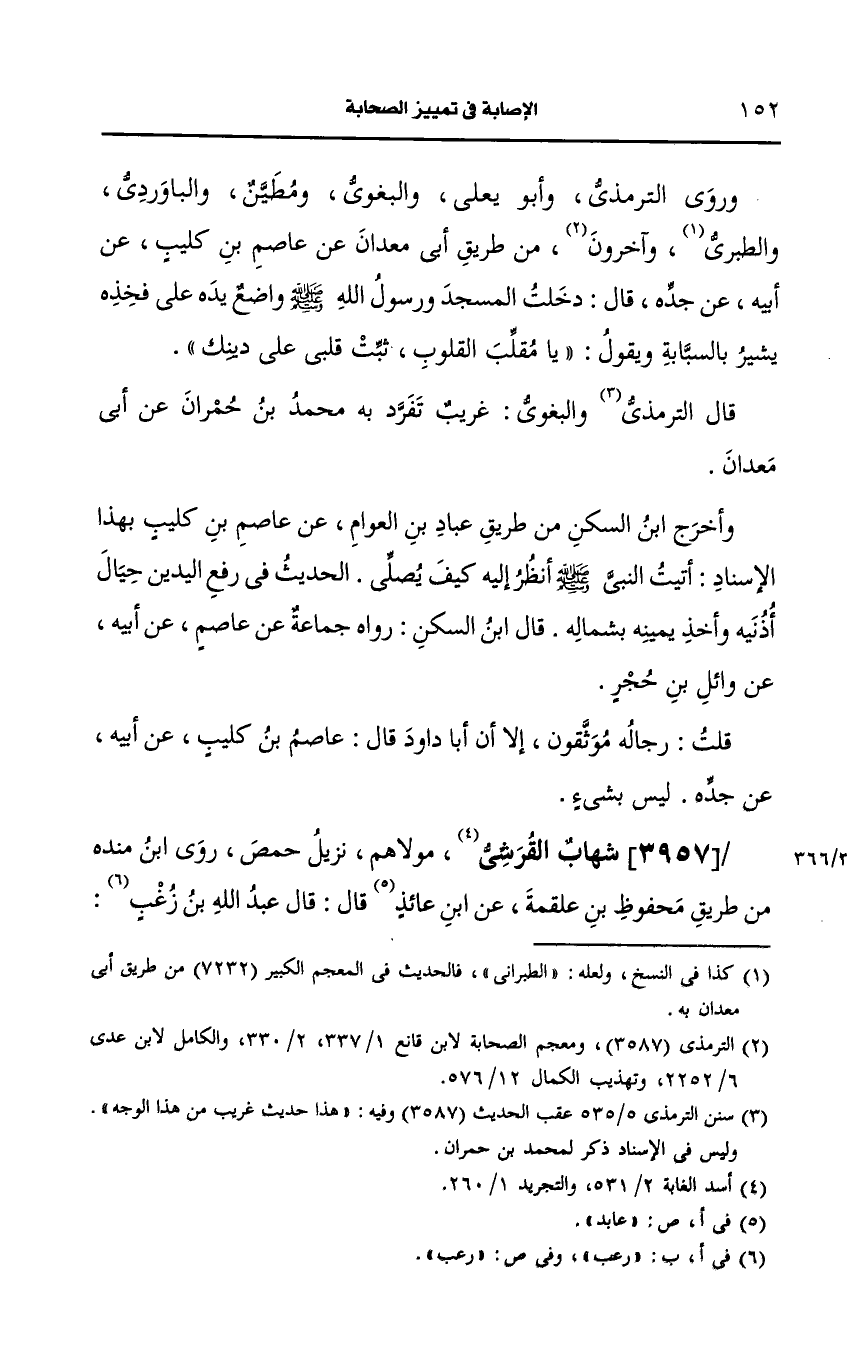 ١٥٢ الإصابة فى تمييز الصحابة
وروَى الترمذىُّ ، وأبو يعلى ، والبغوىُّ ، ومُطَيَّنٌ ، والباوَردِىُّ ،
والطبرىُّ(١) ، وآخرونَ(٢) ، من طريقِ أبى معدانَ عن عاصمِ بنِ كليبٍ ، عن
أبيه ، عن جدِّه ، قال : دخَلتُ المسجدَ ورسولُ اللهِ ﷺ واضعٌ يدَه على فخِذِه
يشيرُ بالسبَّابةِ ويقولُ : « يا مُقلِّبَ القلوبِ ، ثبِّتْ قلبى على دينِك » .
قال الترمذىُّ(٣) والبغوىُّ : غريبٌ تَفَرَّد به محمدُ بنُ حُمْرانَ عن أبى
مَعدانَ .
وأخرَج ابنُ السكنِ من طريقِ عبادِ بنِ العوامِ ، عن عاصمِ بنِ كليبٍ بهذا
الإسنادِ : أتيتُ النبىَّ ﷺ أنظُرُ إليه كيفَ يُصلِّى . الحديثُ فى رفعِ اليدين حِيَالَ
أُذُنَيه وأخذِ يمينِه بشمالِه . قال ابنُ السكنِ : رواه جماعةٌ عن عاصمٍ ، عن أبيه ،
عن وائلِ بنِ حُجْرٍ .
قلتُ : رجالُه مُوَثَّقون ، إلا أن أبا داودَ قال : عاصمُ بنُ كليبٍ ، عن أبيه ،
عن جدِّه . ليس بشىءٍ .
٣٦٦/٢ /[٣٩٥٧] شهابٌ القُرَشِىُّ(٤) ، مولاهم ، نزيلُ حمصَ ، روَى ابنُ منده
من طريقِ مَحفوظِ بنِ علقمةَ ، عن ابنِ عائذٍ(٥) قال : قال عبدُ اللهِ بنُ زُغْبٍ(٦) :
(١) كذا فى النسخ ، ولعله : «الطبرانى» ، فالحديث فى المعجم الكبير (٧٢٣٢) من طريق أبى
معدان به .
(٢) الترمذى (٣٥٨٧) ، ومعجم الصحابة لابن قانع ٣٣٧/١، ٣٣٠/٢، والكامل لابن عدى
٢٢٥٢/٦، وتهذيب الكمال ٥٧٦/١٢.
(٣) سنن الترمذى ٥٣٥/٥ عقب الحديث (٣٥٨٧) وفيه : «هذا حديث غريب من هذا الوجه» .
وليس فى الإسناد ذكر لمحمد بن حمران .
(٤) أسد الغابة ٥٣١/٢، والتجريد ٢٦٠/١.
(٥) فى أ، ص: «عابد» .
(٦) فى أ، ب: «رعب» ، وفى ص: «رعب» .